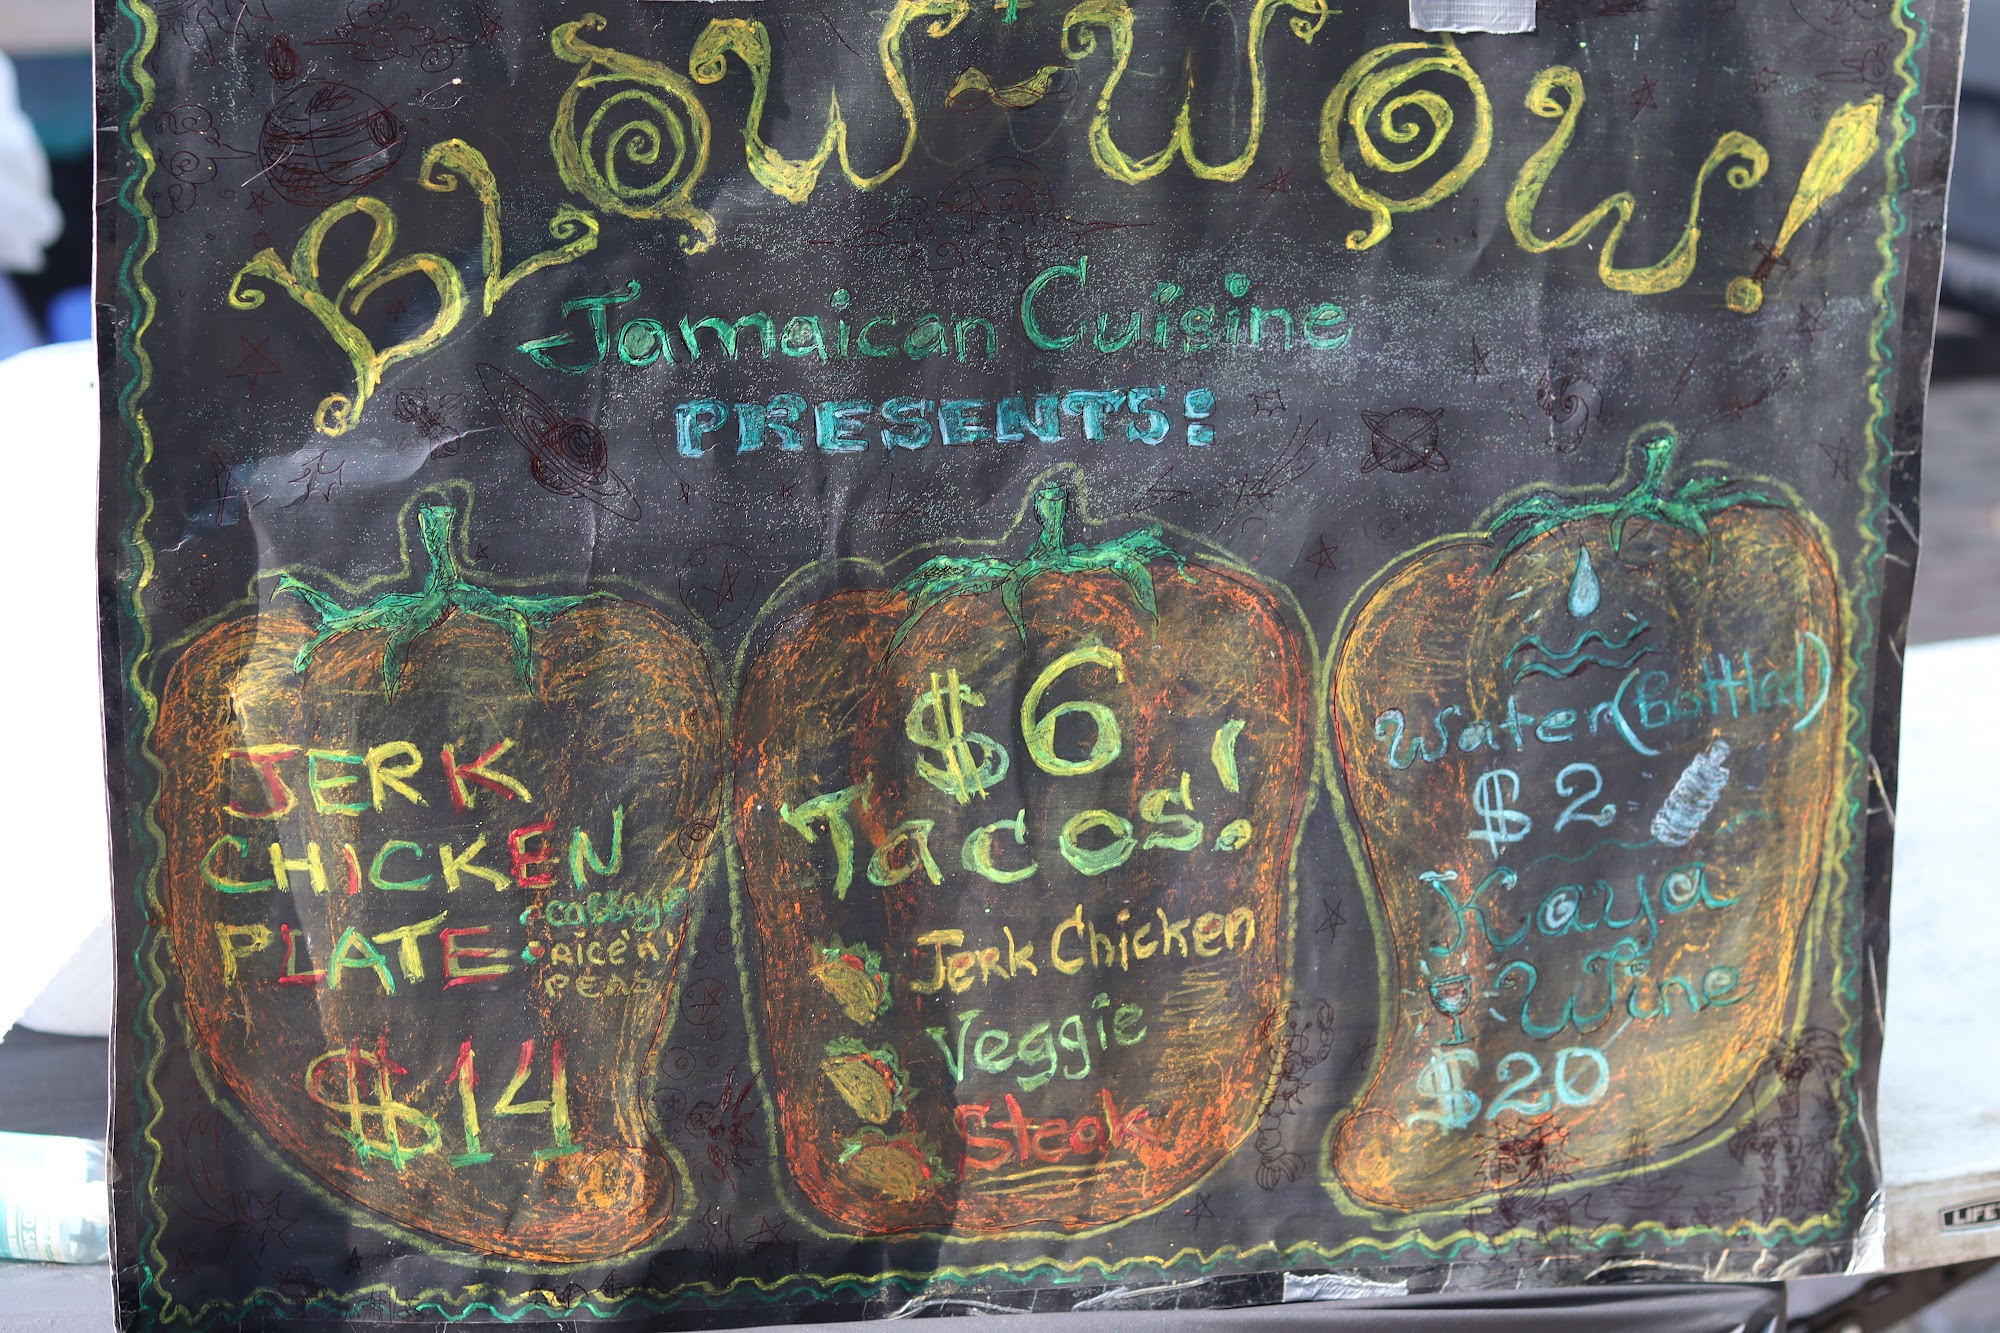 BLOW-WOW!
Jamaican Cuisine
PRESENTS:
JERK
CHICKEN
PLATE
• Cabbage
• RICE 'N'
PEAS
$14
$6
Tacos!
Jerk Chicken
Veggie
Steak
Water (Bottled)
$2
Kaya
Wine
$20